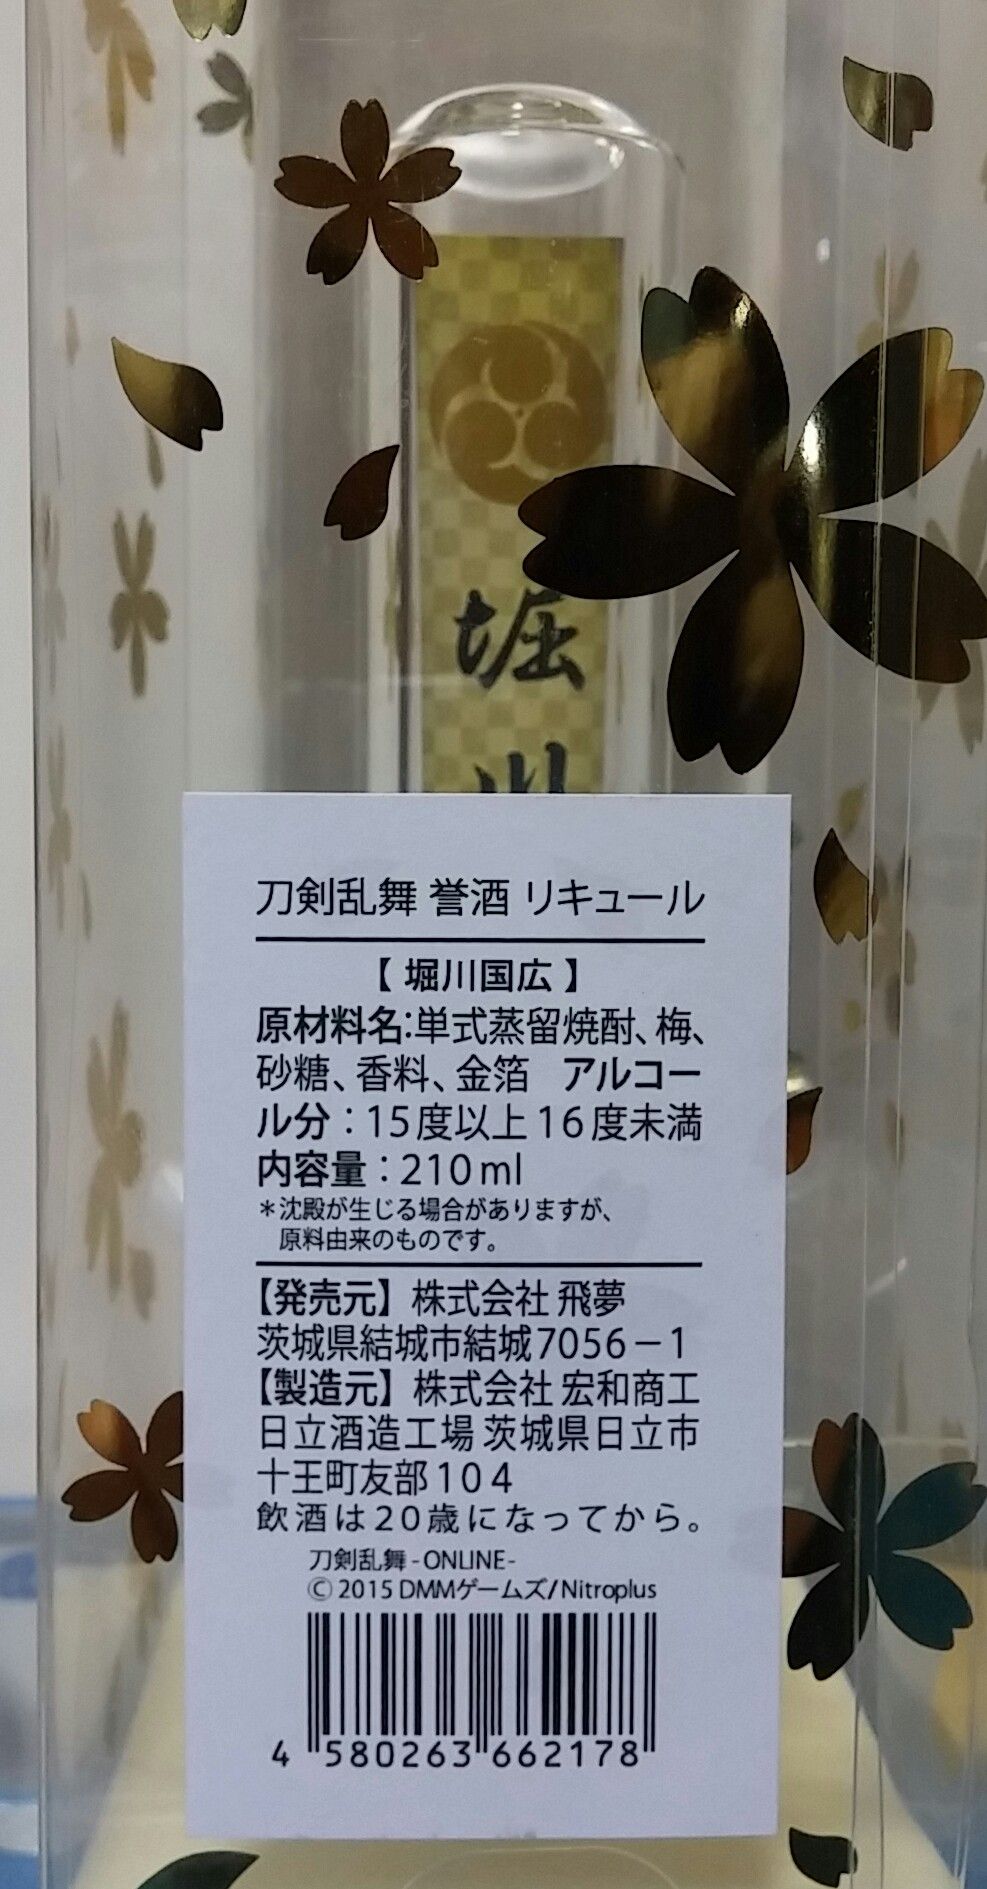 堀
川
刀剣乱舞 誉酒 リキュール
【 堀川国広 】
原材料名:単式蒸留焼酎、梅、
砂糖、香料、金箔 アルコー
ル分：15度以上16度未満
内容量：210ml
＊沈殿が生じる場合がありますが、
原料由来のものです。
【発売元】株式会社 飛夢
茨城県結城市結城7056－1
【製造元】株式会社 宏和商工
日立酒造工場 茨城県日立市
十王町友部104
飲酒は20歳になってから。
刀剣乱舞 -ONLINE-
© 2015 DMMゲームズ/Nitroplus
4 580263 662178